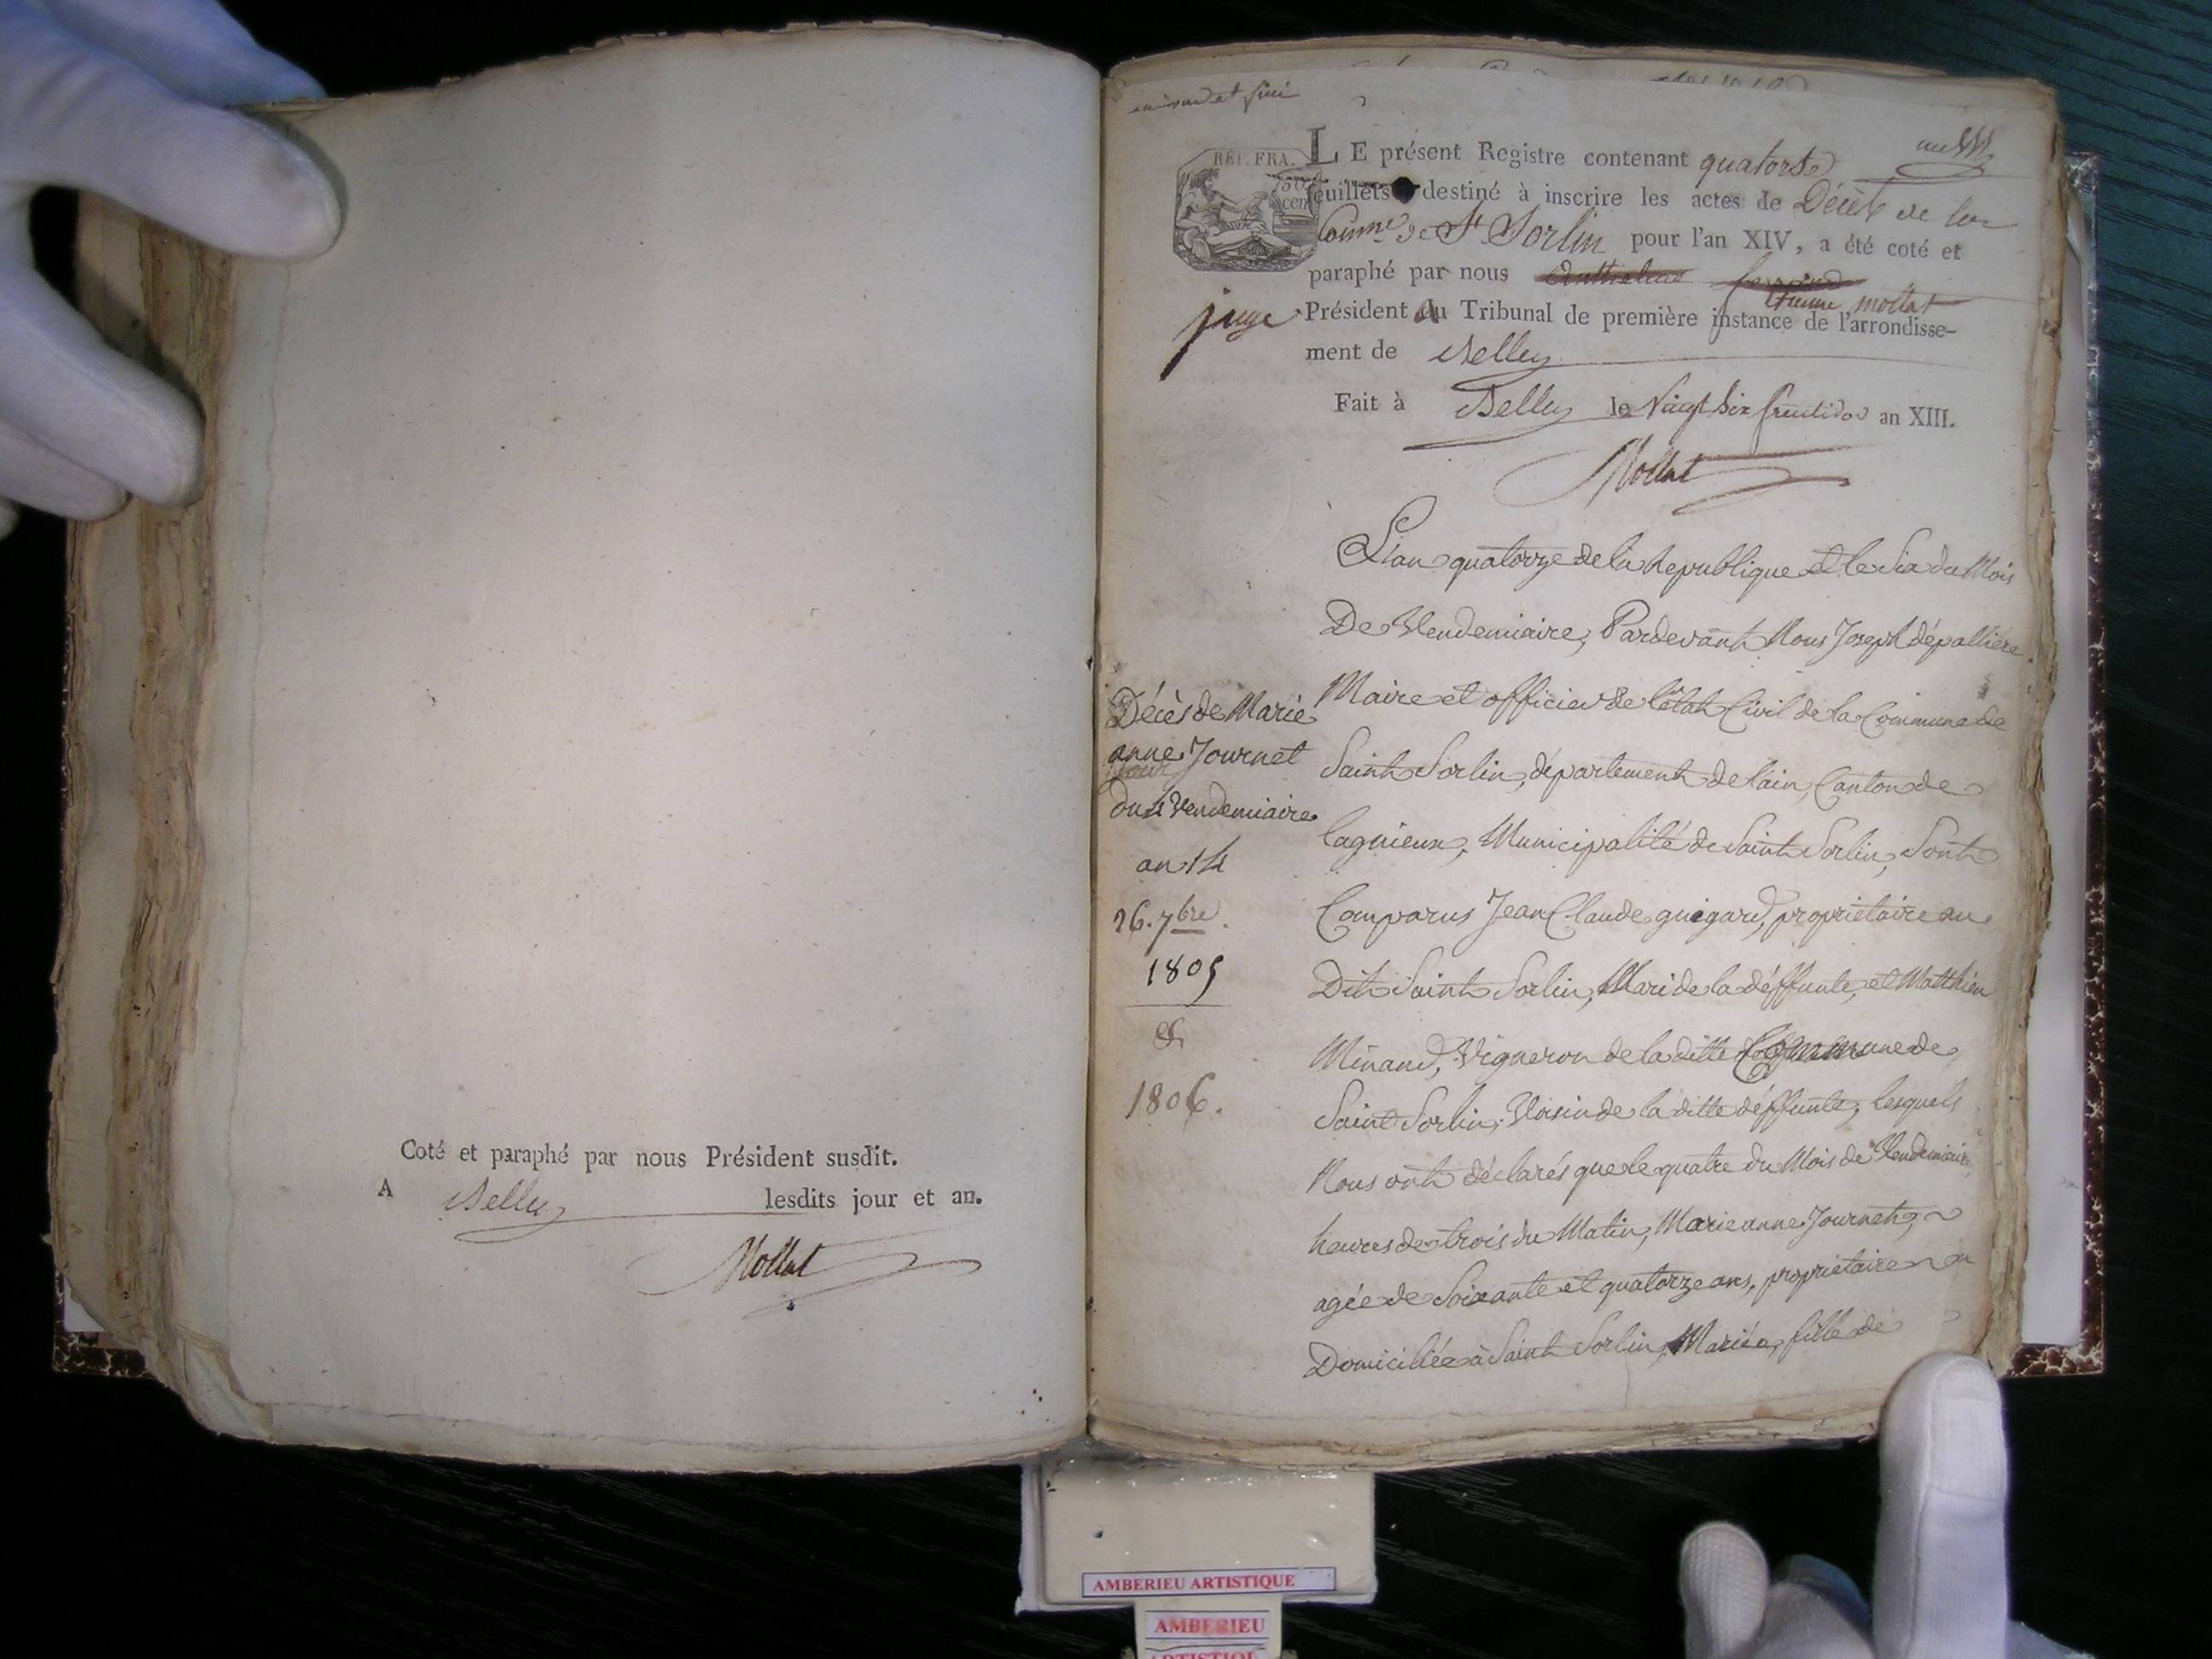 Coté et paraphé par nous Président susdit.
A Belley lesdits jour et an.
Mollat
RÉP. FRA.
50
cen
LE présent Registre contenant quatorse
feuillets destiné à inscrire les actes de Décès de la
Comne de St Sorlin pour l'an XIV, a été coté et
paraphé par nous
Etienne mollat
juge Président au Tribunal de première instance de l'arrondisse-
ment de Belley
Fait à Belley le Vingt Six fructidor an XIII.
Mollat
L'an quatorze de la Republique et le Six du Mois
De Vendemiaire, Pardevant Nous Joseph dépalliere
Maire et officier de l'état Civil de la Commune de
Saint Sorlin, département de lain, Canton de
lagnieux, Municipalité de Saint Sorlin, Sont
Comparus Jean Claude guigard, proprietaire au
Dit Saint Sorlin, Mari de la déffunte, et Matthieu
Minand, Vigneron de la ditte Commune de
Saint Sorlin, Voisin de la ditte déffunte, lesquels
Nous ont déclarés que le quatre du Mois de Vendemiaire
heures de trois du Matin, Marie anne Journet,
agée de Soixante et quatorze ans, proprietaire
Domiciliée à Saint Sorlin, Mariée, fille de
Décès de Marie
anne Journet
du 4 Vendemiaire
an 14
26. 7bre.
1805
&
1806.
AMBERIEU ARTISTIQUE
AMBERIEU
ARTISTIQUE